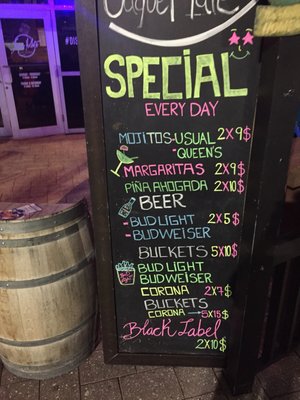 SPECIAL
EVERY DAY
MOJITOS-USUAL 2X9$
-QUEEN'S
MARGARITAS 2X9$
PIÑA AHOGADA 2X10$
BEER
-BUD LIGHT 2X5$
-BUDWEISER
BUCKETS 5X10$
BUD LIGHT
BUDWEISER
CORONA 2X7$
BUCKETS
CORONA → 5X15$
Black Label
2X10$